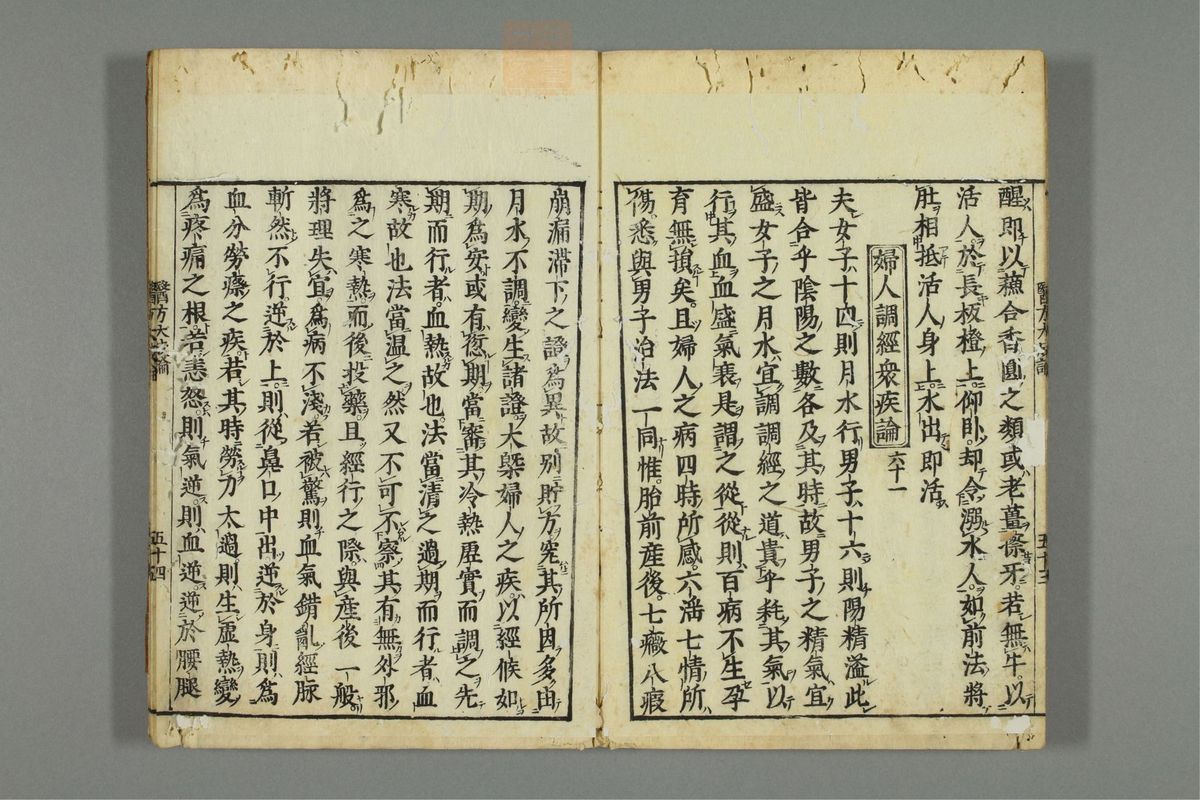 醒即以蘓合香圓之類或老薑擦牙若無牛以
活人於長板櫈上仰臥却令溺水人如前法將
肚相抵活人身上水出即活
婦人調經衆疾論 六十一
夫女子十四則月水行男子十六則陽精溢此
皆合乎陰陽之數各及其時故男子之精氣宜
盛女子之月水宜調調經之道貴乎耗其氣以
行其血血盛氣衰是謂之從從則百病不生孕
育無損矣且婦人之病四時所感六滛七情所
傷悉與男子治法一同惟胎前産後七癥八瘕
崩漏滯下之證爲異故別貯方究其所因多由
月水不調變生諸證大槩婦人之疾以經候如
期爲安或有愆期當審其冷熱虛實而調之先
期而行者血熱故也法當清之過期而行者血
寒故也法當温之然又不可不察其有無外邪
爲之寒熱而後投藥且經行之際與産後一般
將理失宜爲病不淺若被驚則血氣錯亂經脉
斬然不行逆於上則從鼻口中出逆於身則爲
血分勞瘵之疾若其時勞力太過則生虛熱變
爲疼痛之根若恚怒則氣逆則血逆逆於腰腿
醫方大
五十四